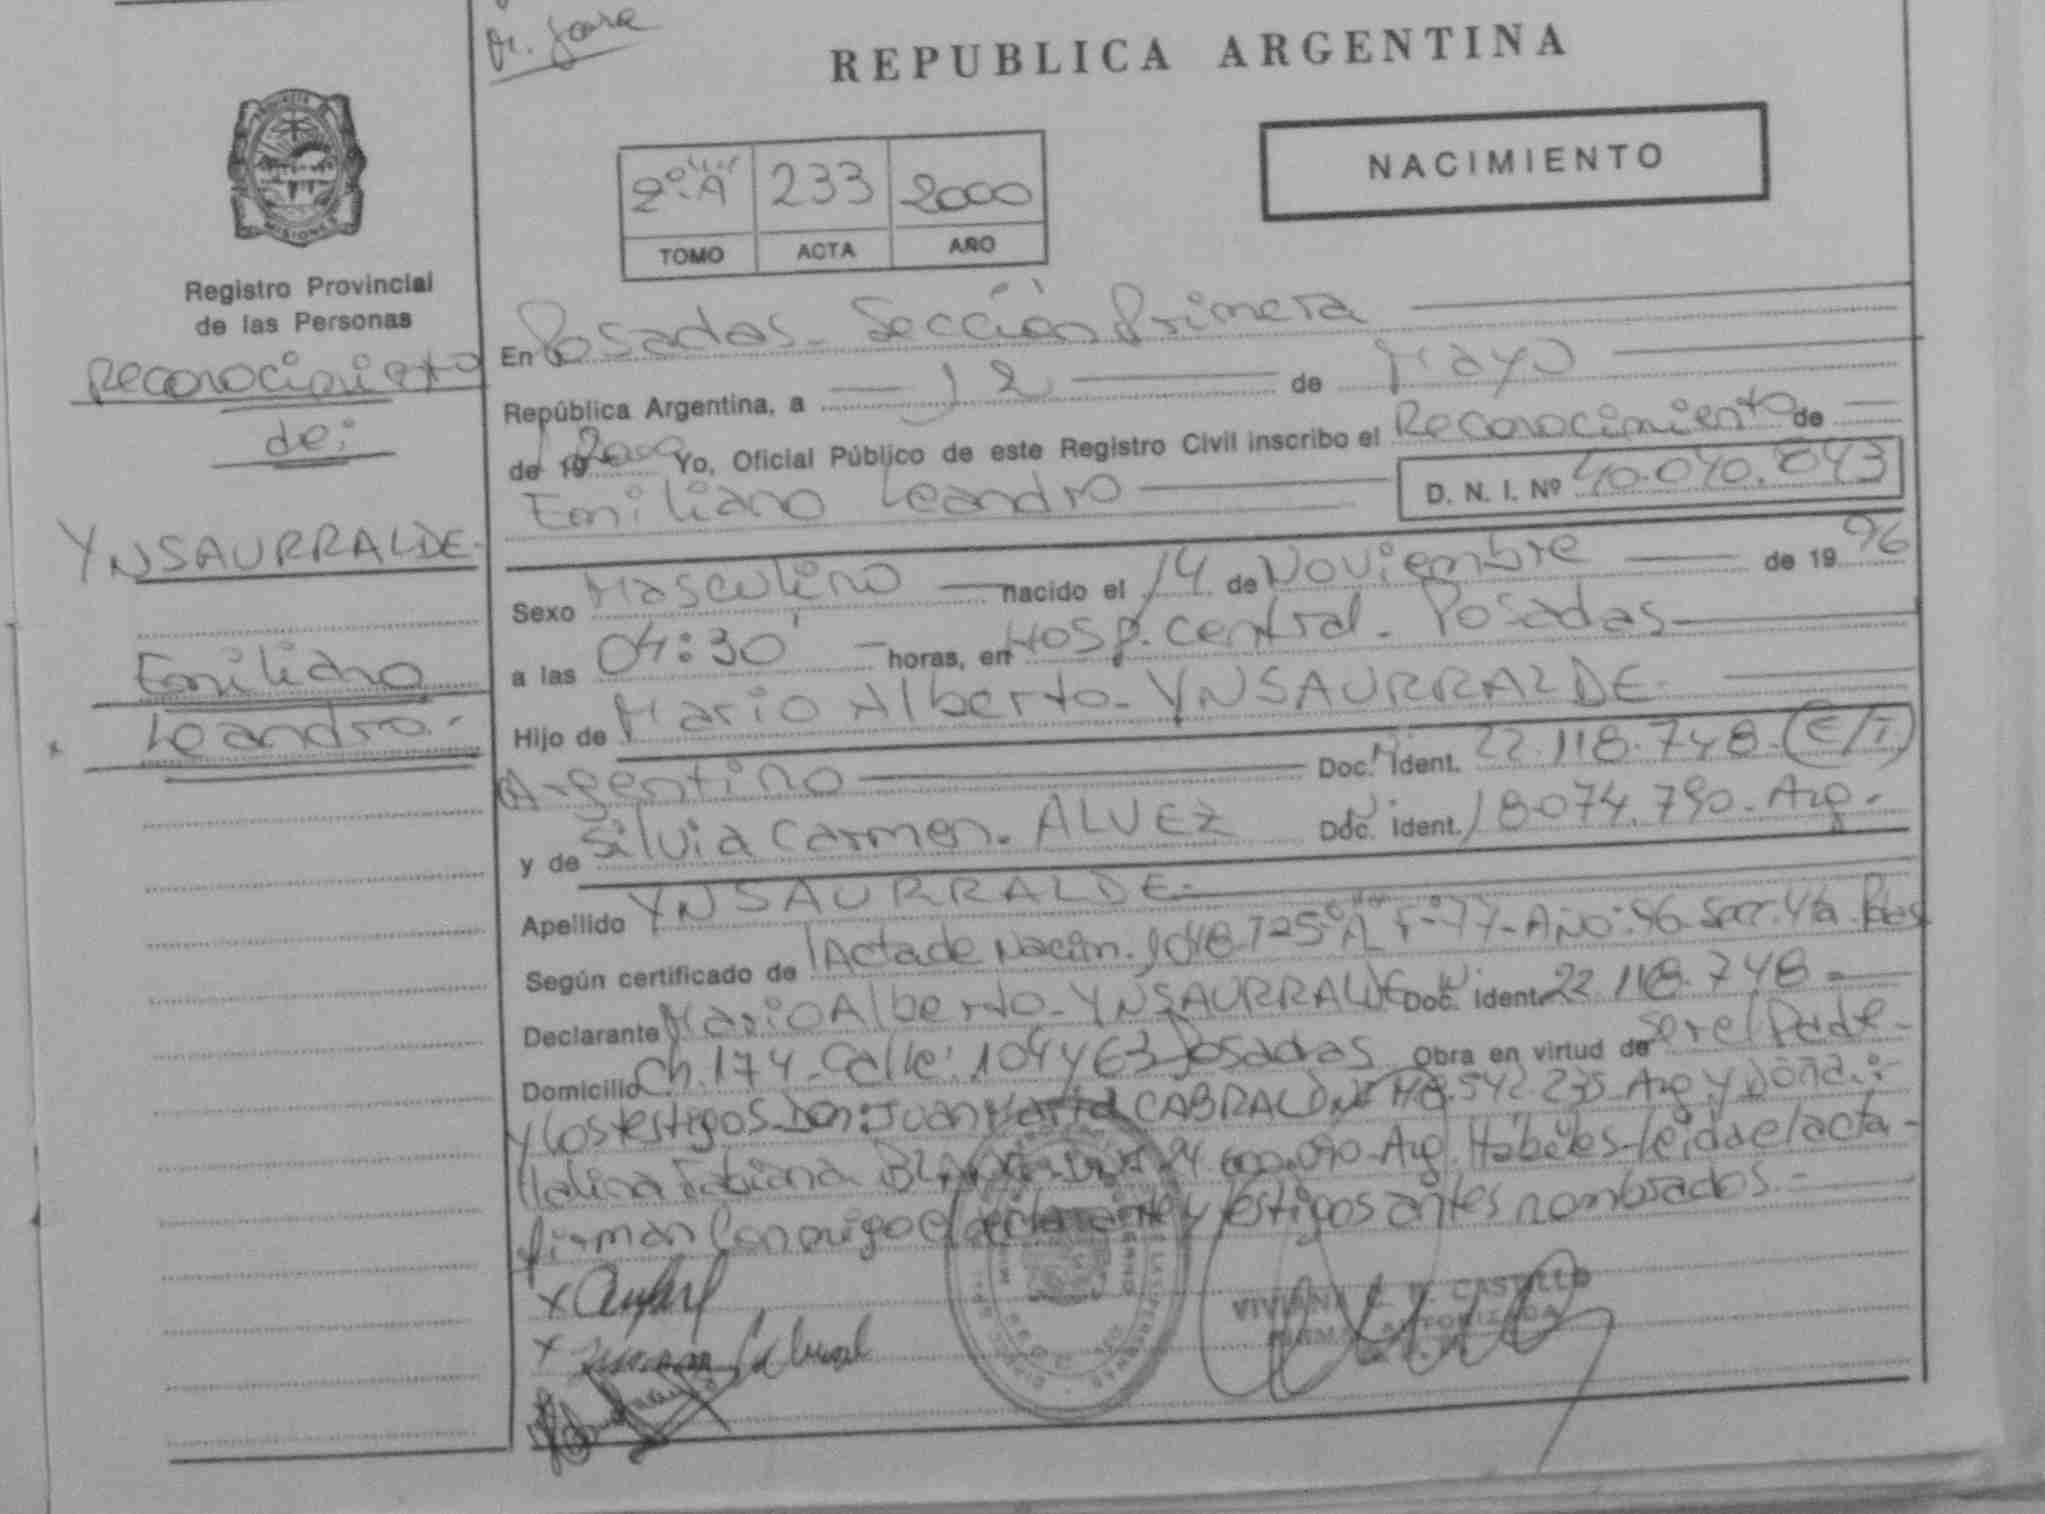 REPUBLICA ARGENTINA
NACIMIENTO
2º "A" 233 2000
TOMO ACTA AÑO
Registro Provincial
de las Personas
Reconocimiento
de:
YNSAURRALDE.
Emiliano
Leandro.-
En Posadas. Sección Primera
República Argentina, a 12 de Mayo
de 19 2000 Yo, Oficial Público de este Registro Civil inscribo el Reconocimiento de
Emiliano Leandro D. N. I. Nº 40.040.843
Sexo Masculino nacido el 14 de Noviembre de 19 96
a las 04:30' horas, en Hosp. Central. Posadas
Hijo de Mario Alberto. YNSAURRALDE.
Argentino Doc. Ident. 22.118.748. (E/T.)
y de Silvia Carmen. ALVEZ Doc. Ident. 18.074.790. Arg.
Apellido YNSAURRALDE.
Según certificado de Acta de Nacim. 1048 T 25º "A" Fº 77 Año: 96 Secc. 4ta.
Declarante Mario Alberto. YNSAURRALDE Doc. Ident. 22.118.748
Domicilio Ch. 174. Calle: 104 y 63 Posadas Obra en virtud de ser el Padre
y los testigos Don: Juan CABRAL DNI 542.235 Arg y Doña:
Fabiana 24.600.090 Arg. Hábiles leída el acta
firman conmigo el declarante y testigos antes nombrados.
CASTILLO
FIRMA AUTORIZADA